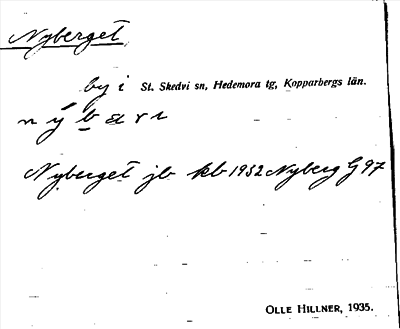 Nyberget
by i St. Skedvi sn, Hedemora tg, Kopparbergs län.
Nyberget jb kb 1932 Nyberg G 97
OLLE HILLNER, 1935.